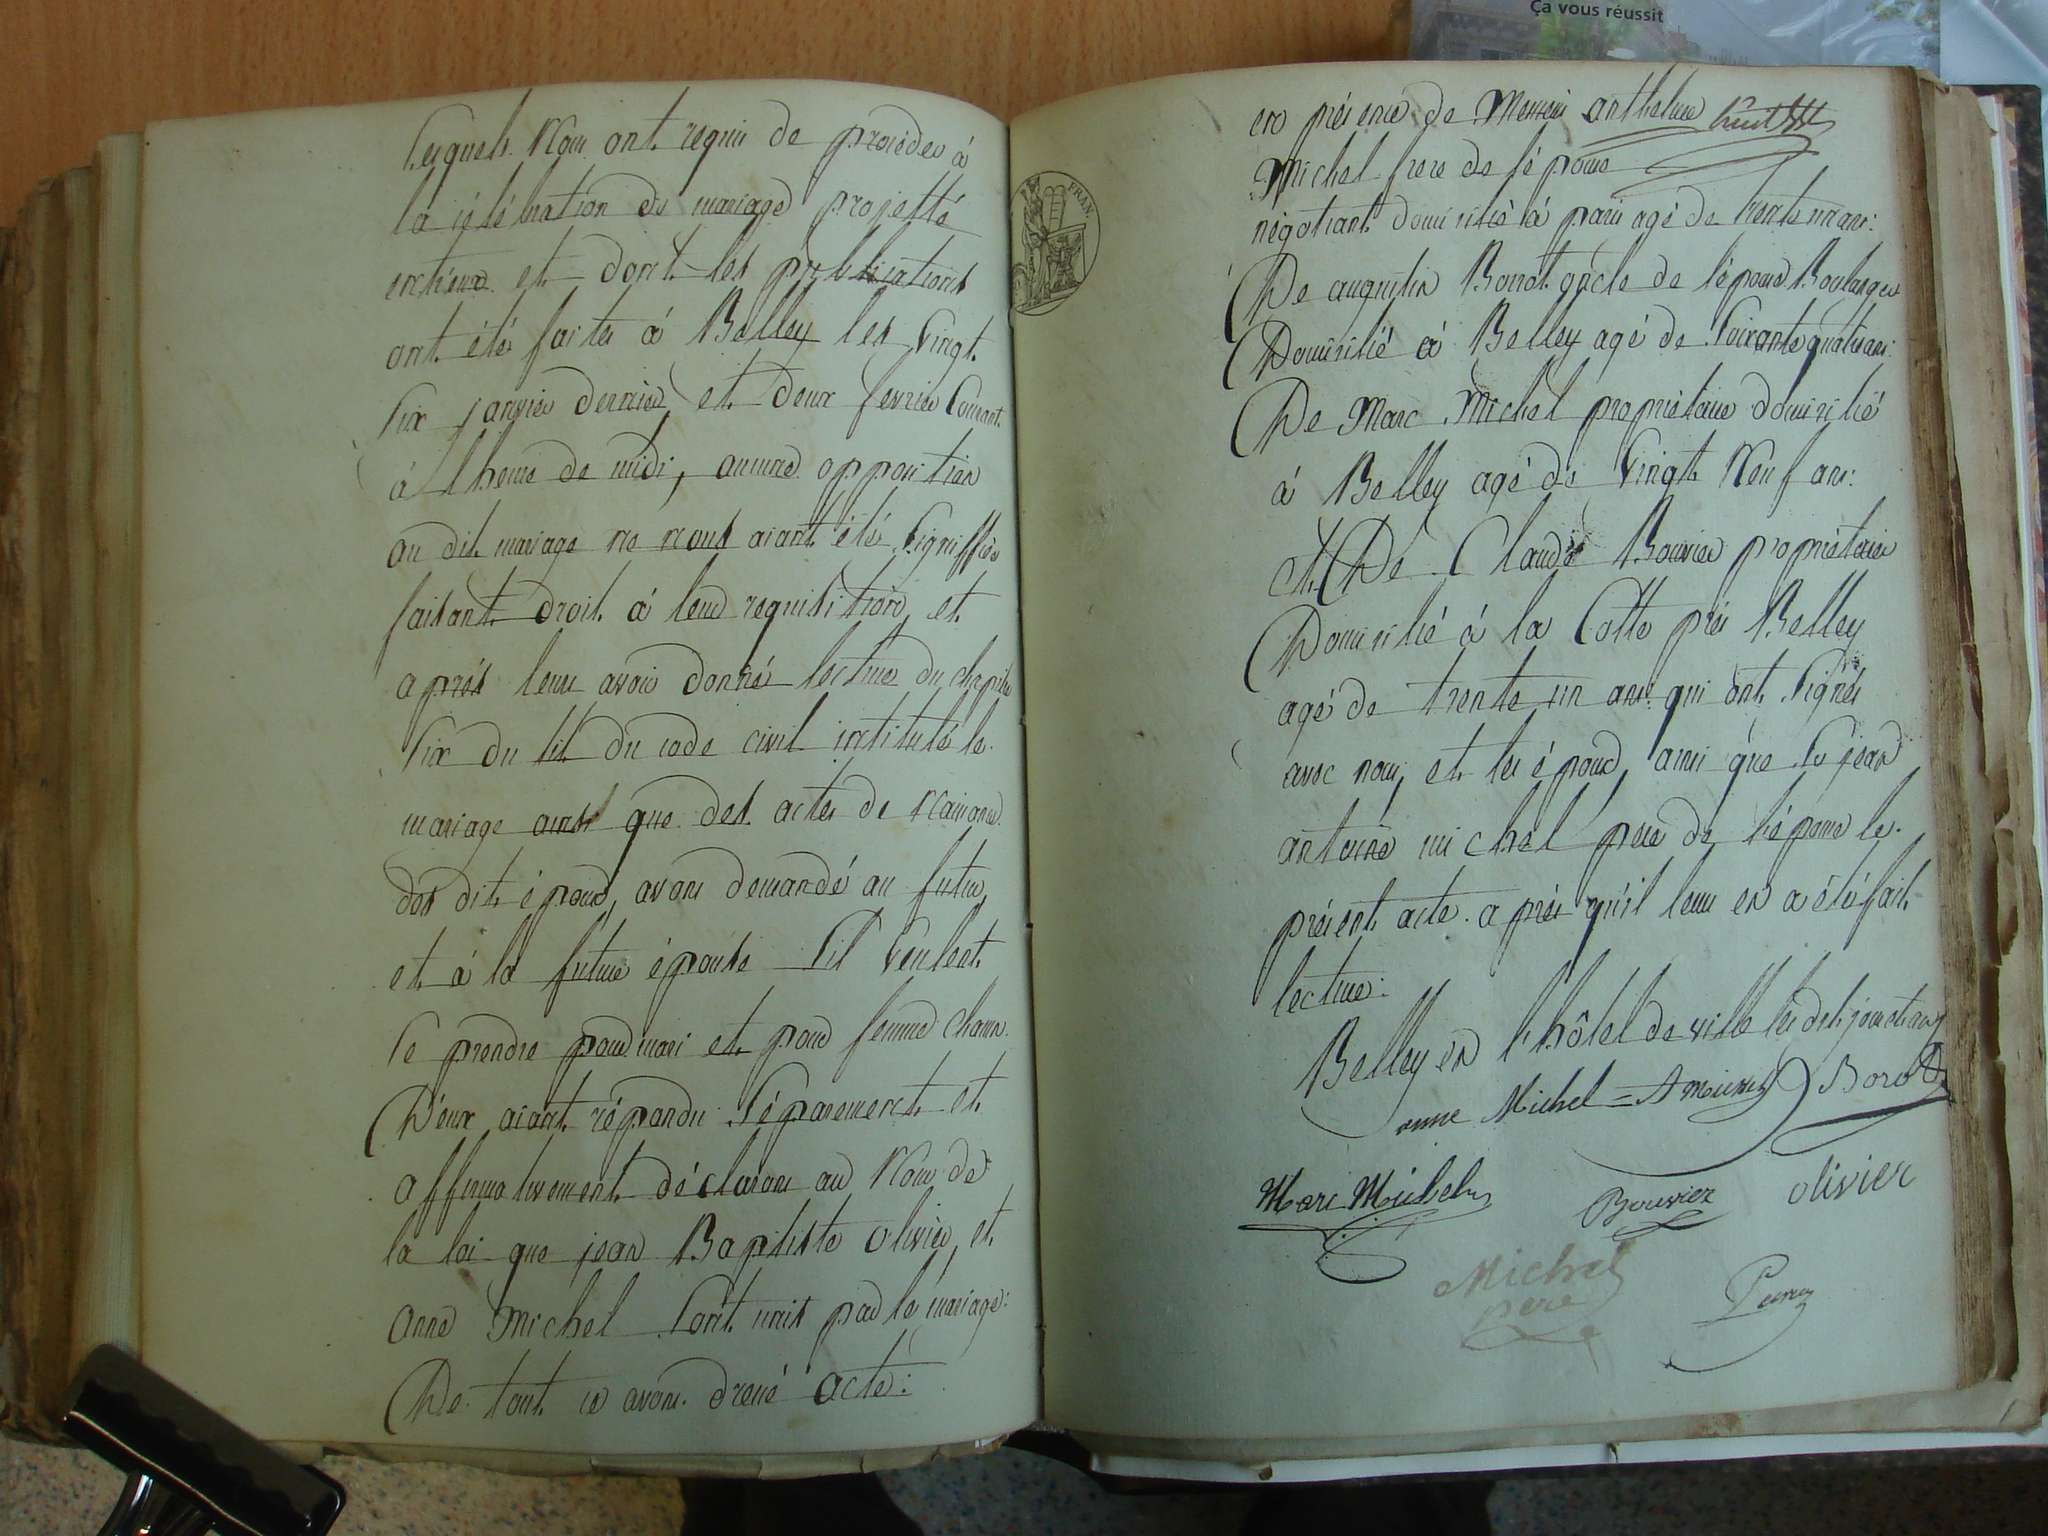 Ça vous réussit
lesquels nous ont requis de procéder à
la célébration du mariage projetté
entreux et dont les publications
ont été faites à Belley les vingt
six janvier dernier et deux fevrier courant
à lheure de midi, aucune opposition
au dit mariage ne nous aiant été signiffiée
faisant droit à leur requisition, et
après leur avoir donné lecture du chapitre
six du tit. du code civil intitulé le
mariage ainsi que des actes de naissance
des dits époux, avons demandé au futur
et à la future épouse sil veulent
se prendre pour mari et pour femme chacun
d'eux aiant répondu séparement et
affirmativement déclarons au nom de
la loi que jean Baptiste olivier et
anne Michel sont unis par le mariage:
De tout ce avons dressé acte:
FRAN.
en présence de Messieurs anthelme
Michel frere de lépouse
négotiant domicilié à paris agé de trente
De augustin Borrot oncle de l'épouse Boulanger
Domicilié à Belley agé de soixante quatre ans:
De Marc Michel propriètaire domicilié
à Belley agé de vingt neuf ans:
et De Claude Bouvier propriètaire
Domicilié à la Cotte près Belley
agé de trente un ans: qui ont signés
avec nous, et les époux, ainsi que sr jean
antoine michel père de lépouse le
présent acte après qu'il leur en a été fait
lecture:
Belley en l'hôtel de ville les dits jour et an
anne Michel = A Michel Borot
Marc Michel Bouvier olivier
Michel
pere